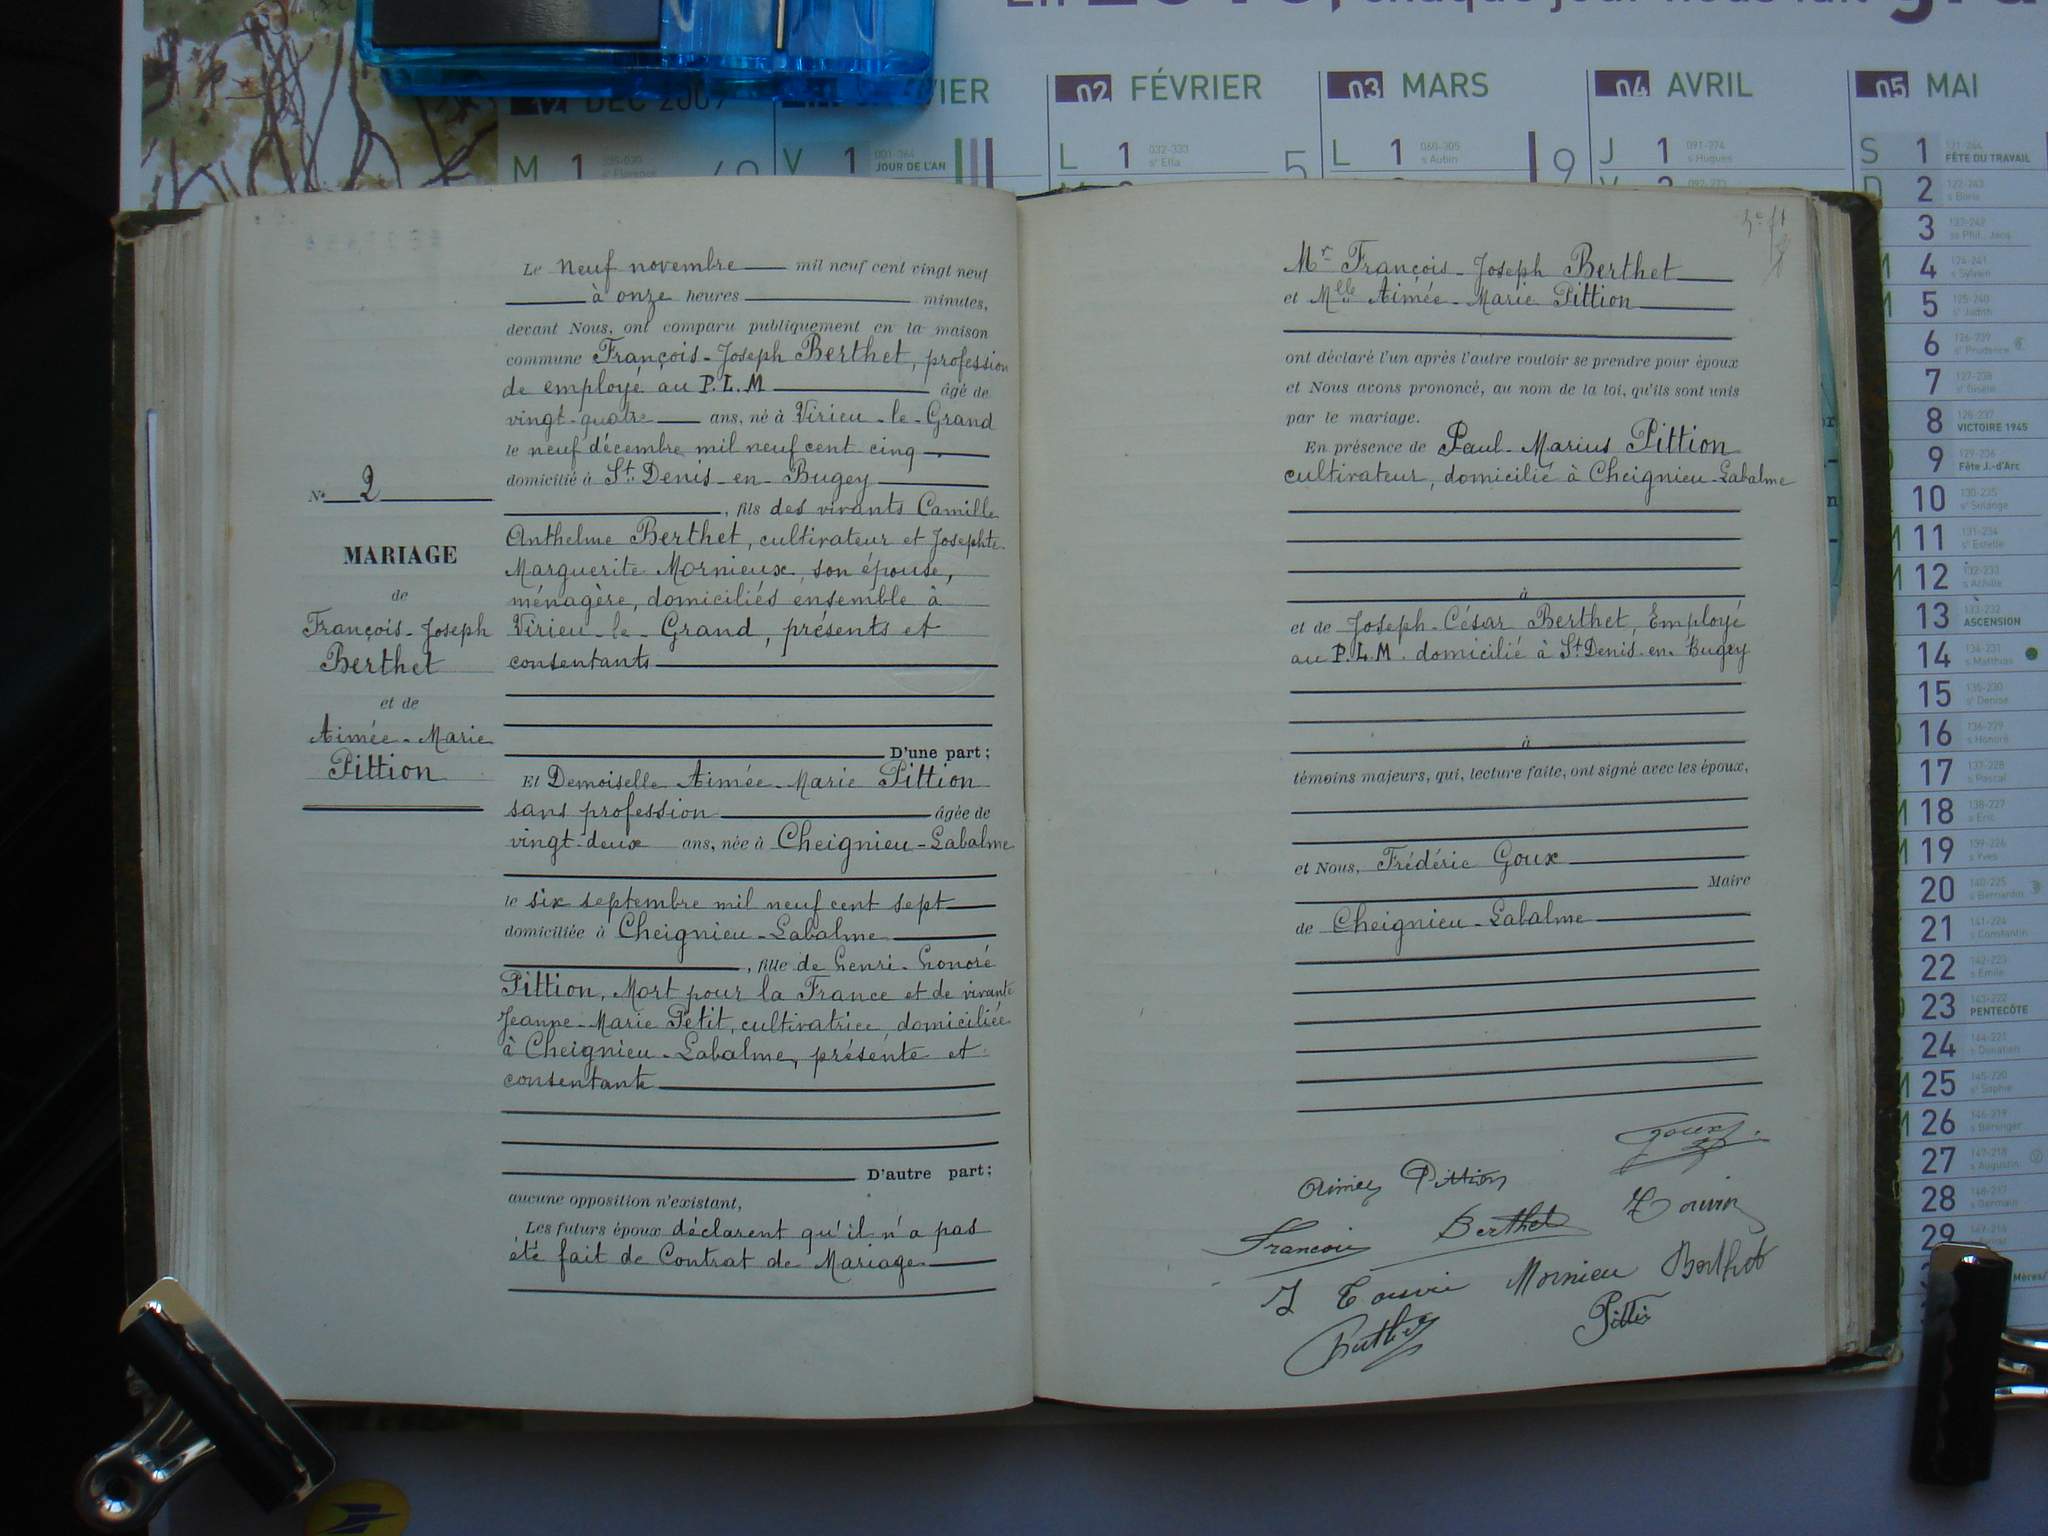 chaque jour nous fait
DEC 2009
VIER
02 FÉVRIER
03 MARS
04 AVRIL
05 MAI
M 1
V 1 JOUR DE L'AN
L 1 032-333 5
sᵉ Ella
L 1 060-305 9
s Aubin
J 1 091-274
s Hugues
S 1 121-244
FÊTE DU TRAVAIL
D 2
3
4
5
6
7
8 VICTOIRE 1945
9 Fête J.-d'Arc
10
11
12
13 ASCENSION
14
15
16
17
18
19
20
21
22
23 PENTECÔTE
24
25
26
27
28
29
Nº 2
MARIAGE
de
François-Joseph
Berthet
et de
Aimée-Marie
Pittion
Le neuf novembre mil neuf cent vingt neuf
à onze heures minutes,
devant Nous, ont comparu publiquement en la maison
commune François-Joseph Berthet, profession
de employé au P.L.M âgé de
vingt-quatre ans, né à Virieu-le-Grand
le neuf décembre mil neuf cent cinq
domicilié à St Denis-en-Bugey
, fils des vivants Camille
Anthelme Berthet, cultivateur et Josephte
Marguerite Mornieux, son épouse,
ménagère, domiciliés ensemble à
Virieu-le-Grand, présents et
consentants
D'une part;
Et Demoiselle Aimée-Marie Pittion
sans profession âgée de
vingt-deux ans, née à Cheignieu-Labalme
le six septembre mil neuf cent sept
domiciliée à Cheignieu-Labalme
, fille de henri-honoré
Pittion, Mort pour la France et de vivante
Jeanne-Marie Petit, cultivatrice, domiciliée
à Cheignieu-Labalme, présente et
consentante
D'autre part;
aucune opposition n'existant,
Les futurs époux déclarent qu'il n'a pas
été fait de Contrat de Mariage
Mr François-Joseph Berthet
et Mlle Aimée-Marie Pittion
ont déclaré l'un après l'autre vouloir se prendre pour époux
et Nous avons prononcé, au nom de la loi, qu'ils sont unis
par le mariage.
En présence de Paul-Marius Pittion
cultivateur, domicilié à Cheignieu-Labalme
à
et de Joseph-César Berthet, Employé
au P.L.M. domicilié à St Denis-en-Bugey
à
témoins majeurs, qui, lecture faite, ont signé avec les époux,
et Nous, Frédéric Goux
Maire
de Cheignieu-Labalme
Goux
Aimée Pittion
François Berthet
Mornieu Berthet
Berthet Pittion